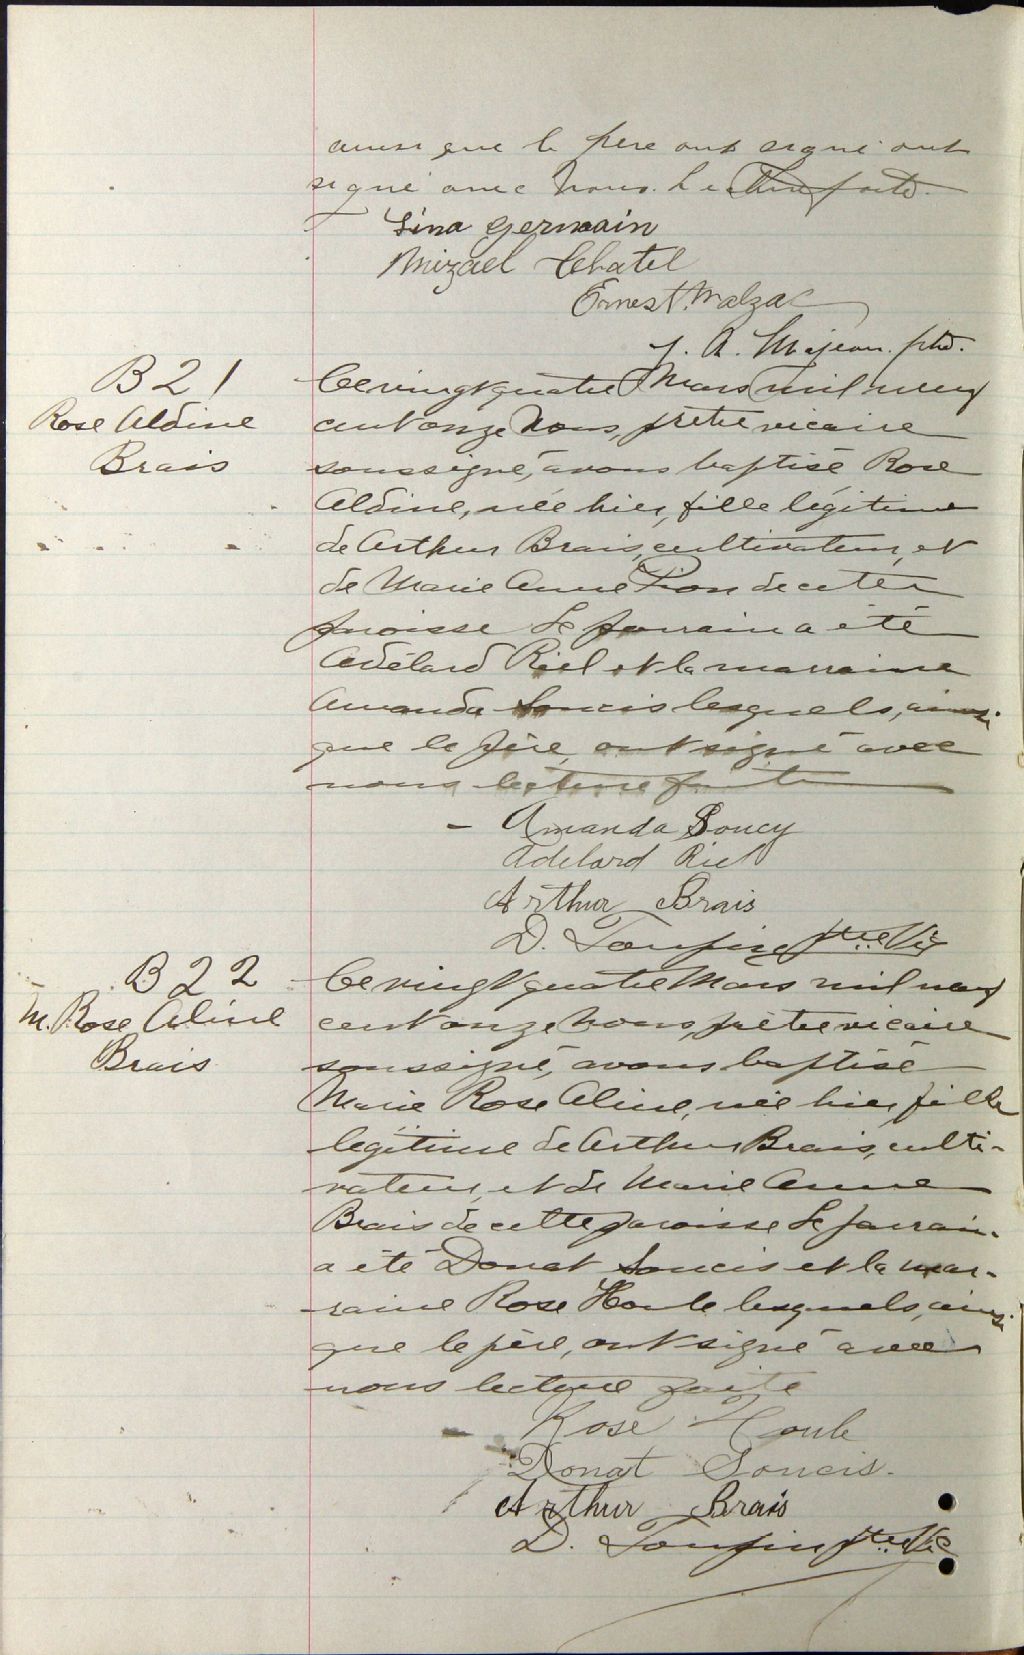 ainsi que le père ont signé ont
signé avec Nous. Lecture faite.
Lina Germain
Mizael Chatel
Ernest Malzac
J. A. Majeau. ptre.
B 21
Rose Aldine
Brais
Ce vingt quatre Mars mil neuf
cent onze Nous, prêtre vicaire
soussigné, avons baptisé Rose
Aldine, née hier, fille légitime
de Arthur Brais, cultivateur, et
de Marie Anne Pion de cette
paroisse Le parrain a été
Adélard Riel et la marraine
Amanda Soucis lesquels, ainsi
que le père, ont signé avec
nous lecture faite
Amanda Soucy
Adelard Riel
Arthur Brais
D. Toupin ptre Vic
B 22
M. Rose Aline
Brais
Ce vingt quatre Mars mil neuf
cent onze, Nous, prêtre vicaire
soussigné, avons baptisé
Marie Rose Aline, née hier, fille
légitime de Arthur Brais, culti-
vateur, et de Marie Anne
Brais de cette paroisse Le parrain
a été Donat Soucis et la mar-
raine Rose Houle lesquels, ainsi
que le père, ont signé avec
nous lecture faite
Rose Houle
Donat Soucis.
Arthur Brais
D. Toupin ptre Vic